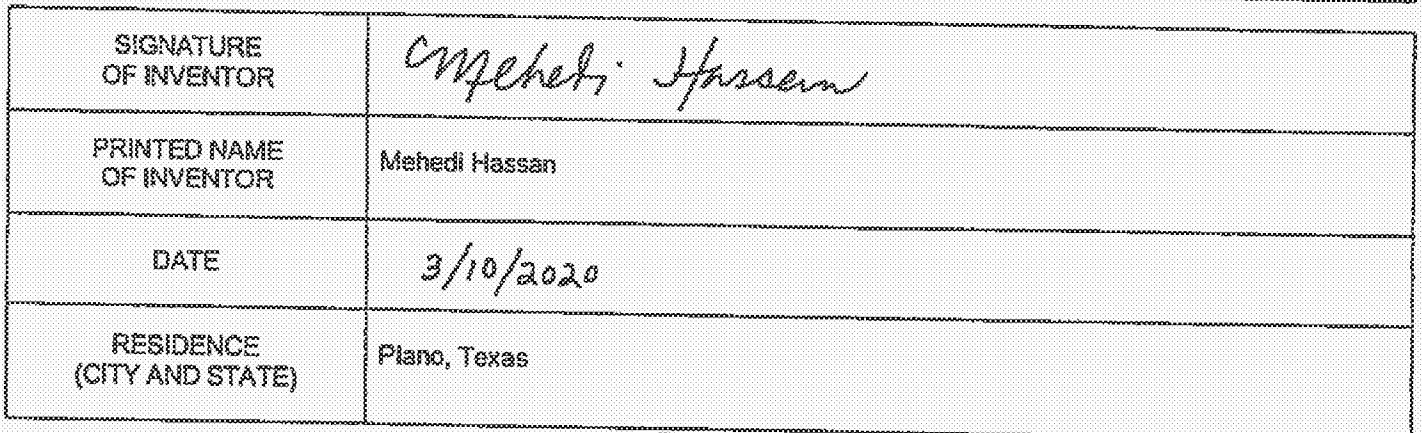 SIGNATURE
OF INVENTOR
Mehedi Hassan
PRINTED NAME
OF INVENTOR
Mehedi Hassan
DATE
3/10/2020
RESIDENCE
(CITY AND STATE)
Plano, Texas